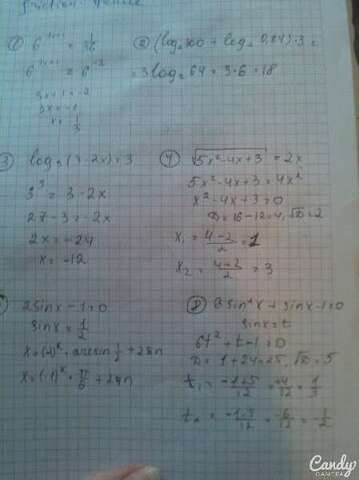 1) 6^(3x+1) = 1/36
6^(3x+1) = 6^-2
3x+1 = -2
3x = -1
x = -1/3
2) (log₂100 + log₂ 0,64)·3 =
= 3log₂64 = 3·6 = 18
3 log₃(3-2x) = 3
3³ = 3-2x
27-3 = -2x
2x = -24
x = -12
4) √(5x²-4x+3) = 2x
5x²-4x+3 = 4x²
x²-4x+3=0
D = 16-12=4, √D=2
x₁ = (4-2)/2 = 1
x₂ = (4+2)/2 = 3
2sinx-1=0
sinx = 1/2
x=(-1)^k · arcsin 1/2 + 2πn
x=(-1)^k · π/6 + 2πn
6sin²x + sinx-1=0
sinx=t
6t²+t-1=0
D = 1+24=25, √D=5
t₁ = (-1+5)/12 = 4/12 = 1/3
t₂ = (-1-5)/12 = -6/12 = -1/2
Candy
CAMERA